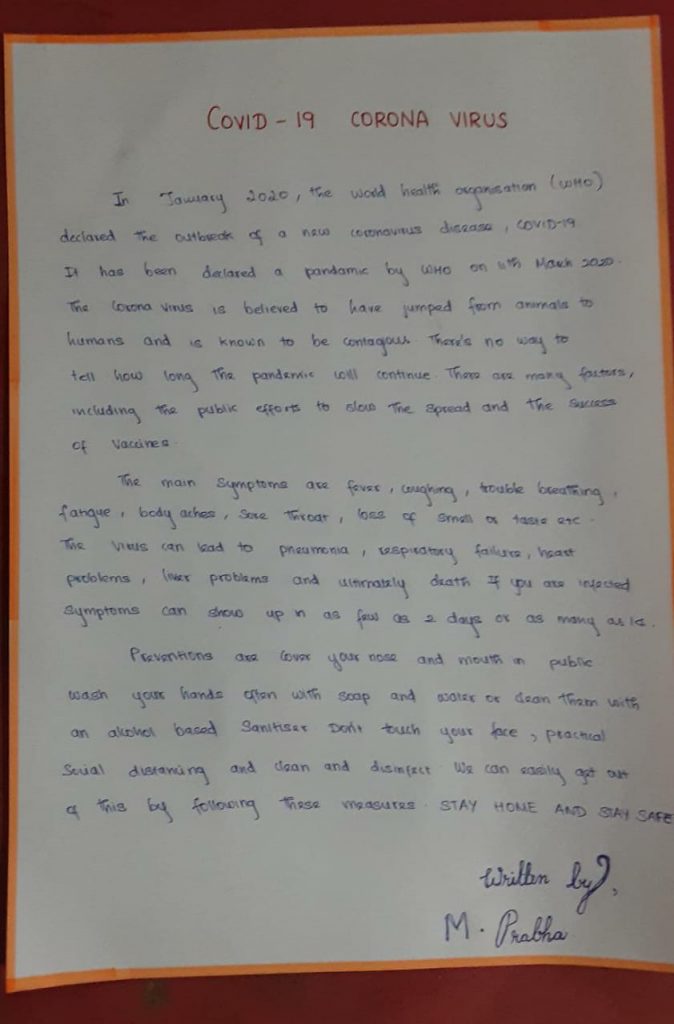 COVID - 19 CORONA VIRUS
In January 2020, the world health organisation (WHO)
declared the outbreak of a new coronavirus disease, COVID-19
It has been declared a pandamic by WHO on 11th March 2020.
The Corona virus is believed to have jumped from animals to
humans and is known to be contagous. There's no way to
tell how long the pandemic will continue. There are many factors,
including the public efforts to slow the spread and the success
of vaccines.
The main symptoms are fever, coughing, trouble breathing,
fatigue, body aches, sore throat, loss of smell or taste etc.
The virus can lead to pneumonia, respiratory failure, heart
problems, liver problems and ultimately death If you are infected
symptoms can show up in as few as 2 days or as many as 14.
Preventions are cover your nose and mouth in public
wash your hands often with soap and water or clean them with
an alcohol based Sanitiser Don't touch your face, practical
Social distancing and clean and disinfect We can easily get out
of this by following these measures. STAY HOME AND STAY SAFE
Written by,
M. Prabha